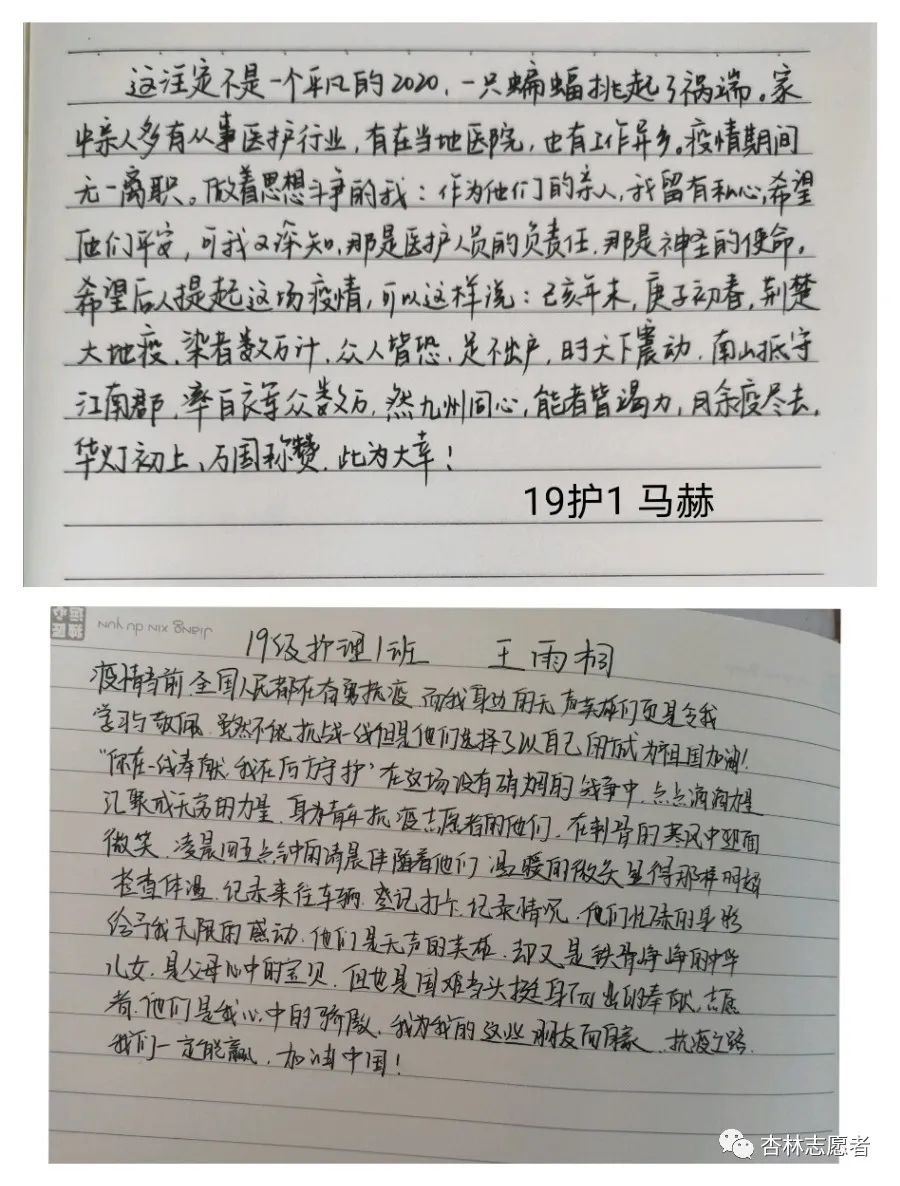 这注定不是一个平凡的2020,一只蝙蝠挑起了祸端。家
中亲人多有从事医护行业,有在当地医院,也有工作异乡。疫情期间
无一离职。做着思想斗争的我:作为他们的亲人,我留有私心,希望
他们平安,可我又深知,那是医护人员的负责任.那是神圣的使命。
希望后人提起这场疫情,可以这样说:己亥年末,庚子初春,荆楚
大地疫.染者数万计.众人皆恐.足不出户,时天下震动.南山抵守
江南郡,率白衣等众数万.然九州同心,能者皆竭力,月余疫尽去,
华灯初上、万国称赞.此为大幸!
19护1 马赫
Jiang xin du yun
19级护理1班 王雨桐
疫情当前 全国人民都在奋勇抗疫 而我身边的无声英雄们更是令我
学习与敬佩.虽然不能抗战一线但是他们选择了以自己的方式为祖国加油!
"你在一线奉献 我在后方守护"在这场没有硝烟的战争中.点点滴滴力量
汇聚成无穷的力量.身为青年抗疫志愿者的他们.在刺骨的寒风中迎面
微笑.凌晨四五点钟的清晨伴随着他们 温暖的微笑显得那样明媚
检查体温.记录来往车辆.登记打卡.记录情况.他们忙碌的身影
给予我无限的感动.他们是无声的英雄.却又是铁骨铮铮的中华
儿女.是父母心中的宝贝.但也是国难当头挺身而出的奉献志愿
者.他们是我心中的骄傲.我为我的这些朋友而自豪.抗疫之路
我们一定能赢.加油中国!
杏林志愿者